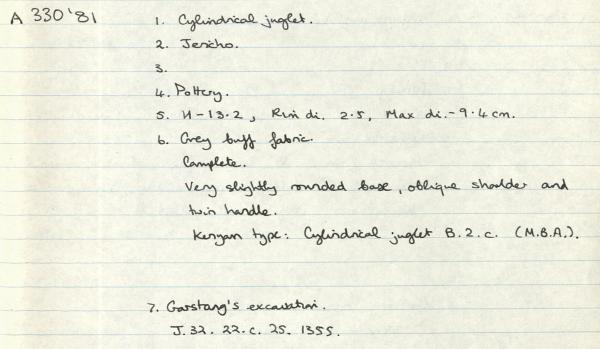 A 330'81
1. Cylindrical juglet.
2. Jericho.
3.
4. Pottery.
5. H-13.2, Rim di. 2.5, Max di.-9.4cm.
6. Grey buff fabric.
Complete.
Very slightly rounded base, oblique shoulder and
twin handle.
Kenyan type: Cylindrical juglet B.2.c. (M.B.A.).
7. Garstang's excavation.
J.32.22.c.25.1355.